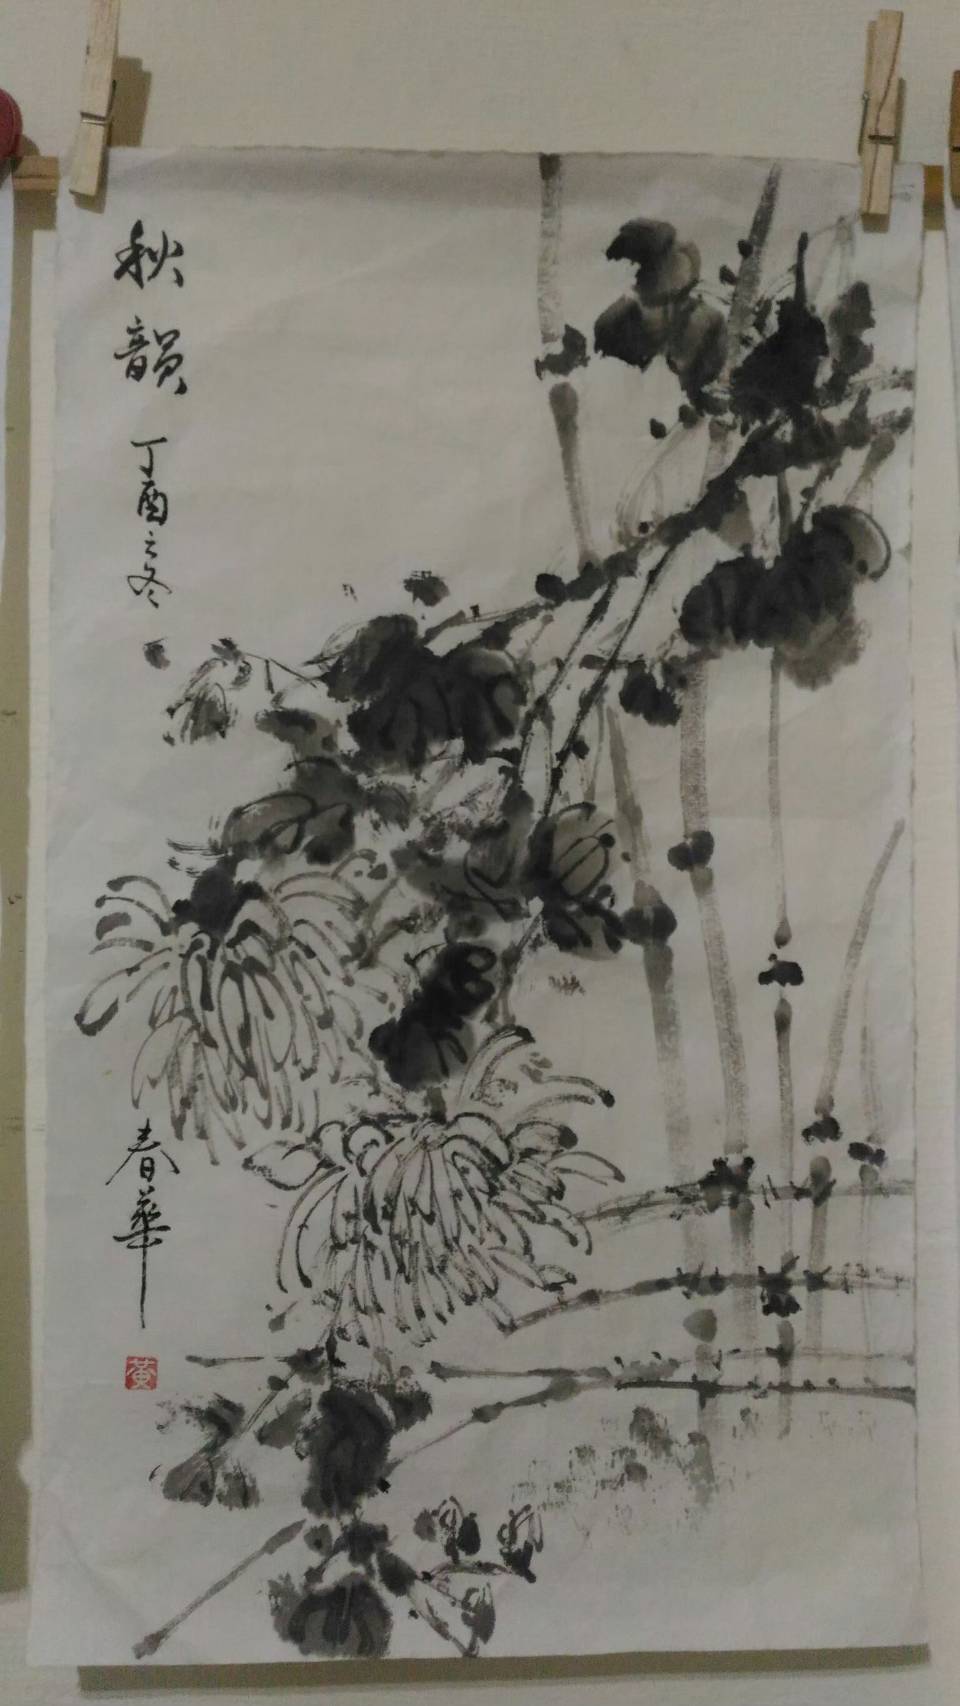 秋韻
丁酉之冬
春華
黃